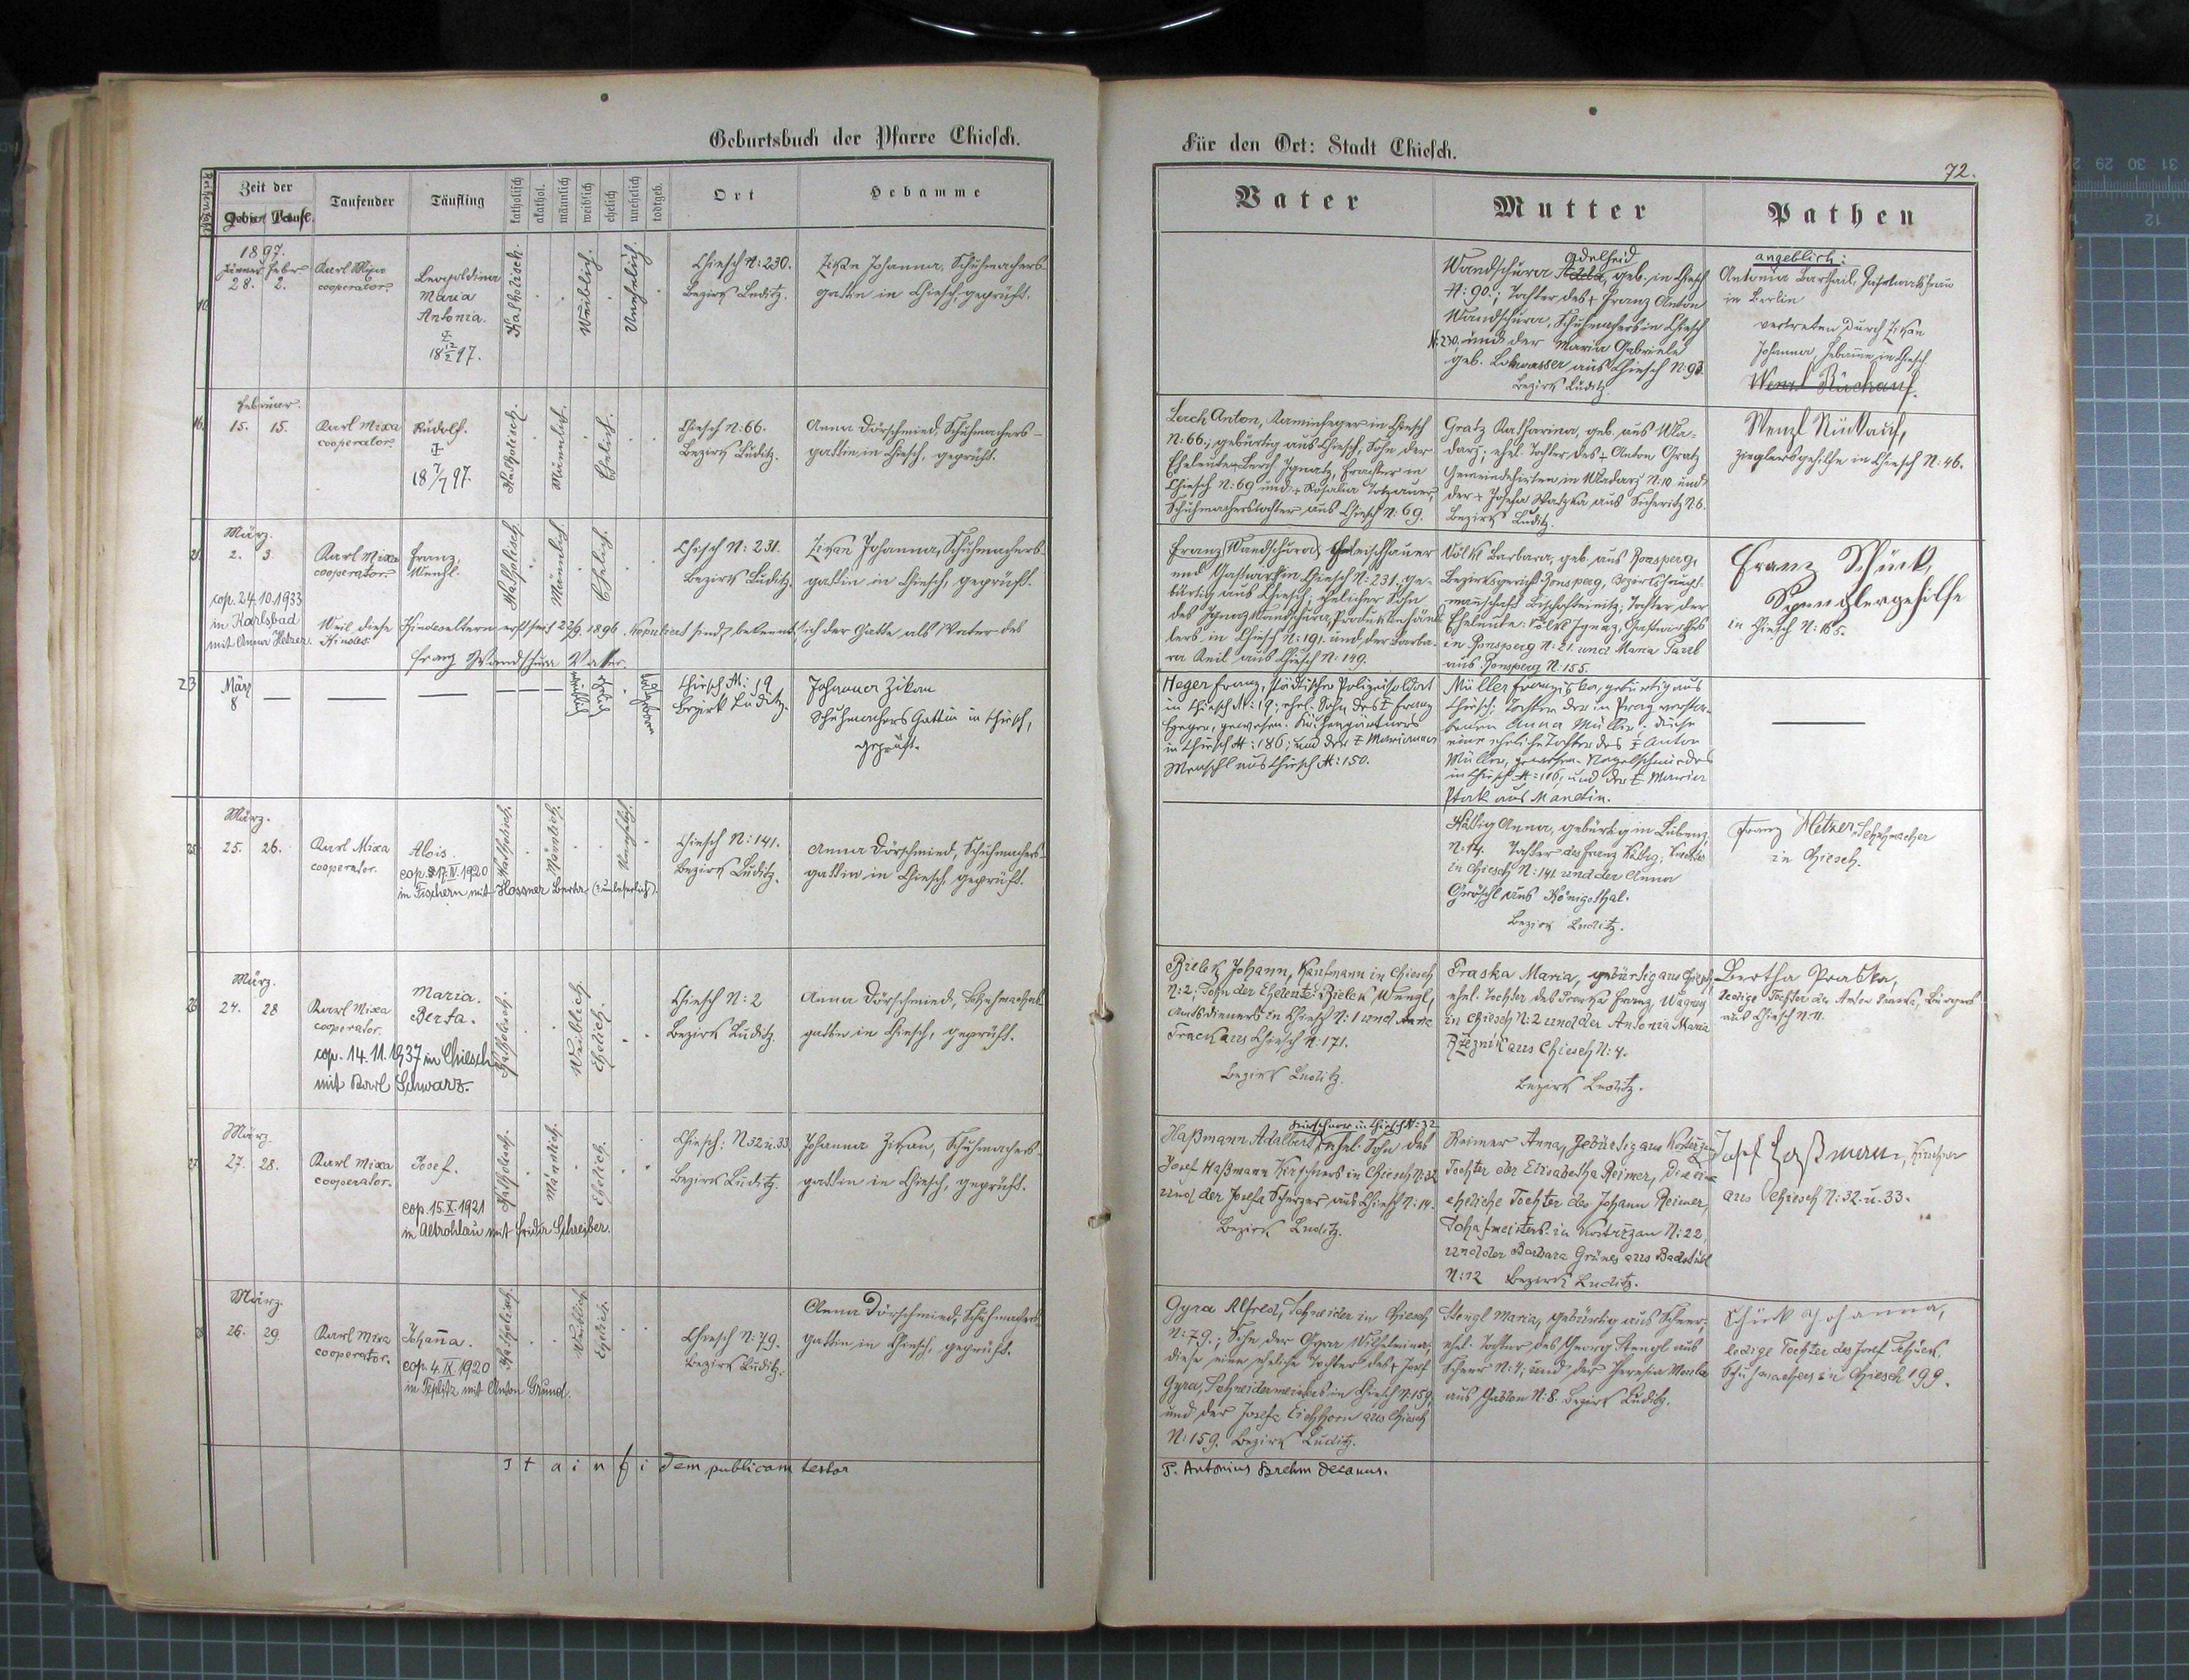 Geburtsbuch der Pfarre Chiesch.
Zeit der
Geburt Taufe.
Taufender
Täufling
katholisch
akathol.
männlich
weiblich
ehelich
unehelich
todtgeb.
Ort
Hebamme
1897.
Jänner Febr
28. 2.
Karl Mixa
cooperator.
Leopoldina
Maria
Antonia.
Katholisch.
Weiblich.
Unehelich.
Chiesch N: 230.
Bezirk Luditz.
Zikan Johanna, Schuhmachers
gattin in Chiesch, geprüft.
Februar.
15. 15.
Karl Mixa
cooperator.
Rudolf.
18 7/7 97.
Katholisch.
Männlich.
Ehelich.
Chiesch N: 66.
Bezirk Luditz.
Anna Dörschmied, Schuhmachers-
gattin in Chiesch, geprüft.
März.
2. 3.
Karl Mixa
cooperator.
Franz,
Wenzl.
Katholisch.
Männlich.
Ehelich.
Chiesch N: 231.
Bezirk Luditz.
Zikan Johanna, Schuhmachers
gattin in Chiesch, geprüft.
cop. 24.10.1933
in Karlsbad
mit Anna Hetzer.
Weil diese Kindeseltern erst seit 22/9. 1896 kopuliert sind, bekennt sich der Gatte als Vater des
Kindes.
Franz Wandschura Vater.
23
März
8
weiblich
Ehelich
todtgeboren
Chiesch N: 19
Bezirk Luditz.
Johanna Zikan
Schuhmachers Gattin in Chiesch,
geprüft.
März.
25. 26.
Karl Mixa
cooperator.
Alois.
Katholisch.
Männlich.
Unehelich.
Chiesch N: 141.
Bezirk Luditz.
Anna Dörschmied, Schuhmachers-
gattin in Chiesch, geprüft.
cop. 17.IV.1920
in Fischern mit Hossner Berta (unleserlich).
26
März.
24. 28
Karl Mixa
cooperator.
Maria.
Berta.
Katholisch.
Weiblich.
Ehelich.
Chiesch N: 2
Bezirk Luditz.
Anna Dörschmied, Schuhmachers
gattin in Chiesch, geprüft.
cop. 14.11.1937 in Chiesch
mit Karl Schwarz.
27
März.
27. 28.
Karl Mixa
cooperator.
Josef.
Katholisch.
Männlich.
Ehelich.
Chiesch: N 32 u. 33
Bezirk Luditz.
Johanna Zikan, Schuhmachers-
gattin in Chiesch, geprüft.
cop. 15.X.1921
in Altrohlau mit Frida Schreiber.
März.
26. 29.
Karl Mixa
cooperator.
Johanna.
Katholisch.
Weiblich.
Ehelich.
Chiesch N: 79.
Bezirk Luditz.
Anna Dörschmied, Schuhmachers
gattin in Chiesch, geprüft.
cop. 4.IX.1920
in Teplitz mit Anton Grund.
Ita in fidem publicam testor
Für den Ort: Stadt Chiesch.
72.
Vater
Mutter
Pathen
Adelheid
Wandschura Adela, geb. in Chiesch
N: 90.; Tochter des + Franz Anton
Wandschura, Schuhmachers in Chiesch
N: 230. und der Maria Gabriele
geb. Lokwasser aus Chiesch N: 93.
Bezirk Luditz.
angeblich:
Antonia
in Berlin
vertreten durch Zikan
Johanna, Hebamme in Chiesch.
Lerch Anton, Kaminfeger in Chiesch
N: 66.; gebürtig aus Chiesch, Sohn der
Eheleute: Lerch Ignatz, in
Chiesch N: 69 und + Rosalia Totzauer,
Schuhmacherstochter aus Chiesch N: 69.
Gratz Katharina, geb. aus Wla-
darz; ehel. Tochter des + Anton Gratz
Gemeindehirten in Wladarz N: 10 und
der + Josefa Watzka aus N: 6.
Bezirk Luditz.
Wenzl Rückauf,
Zieglersgehilfe in Chiesch N: 46.
Franz Wandschura, Fleischhauer
und Gastwirth in Chiesch N: 231.; ge-
bürtig aus Chiesch, ehelicher Sohn
des Ignaz Wandschura, Produktenhänd-
lers in Chiesch N: 191. und der Barba-
ra Keil aus Chiesch N: 149.
Völkl Barbara, geb. aus Ronsperg,
Bezirksgericht Ronsperg, Bezirkshaupt-
mannschaft Bischofteinitz; Tochter der
Eheleute: Völkl Ignaz, Gastwirthes
in Ronsperg N: 21. und Maria
aus Ronsperg N: 155.
Franz Schück,
Spenglergehilfe
in Chiesch N: 165.
Heger Franz, städtischer Polizeisoldat
in Chiesch N: 19; ehel. Sohn des + Franz
Heger, gewesen. Küchengärtners
in Chiesch N: 186; und der + Marianna
Menschl aus Chiesch N: 150.
Müller Franziska, gebürtig aus
Chiesch; Tochter der in Prag verstor-
benen Anna Müller; diese
eine eheliche Tochter des + Anton
Müller, gewesen. Nagelschmiedes
in Chiesch N: 116, und der + Maria
Ptak aus Manetin.
Kattig Anna, gebürtig in Lubenz
N: 14. Tochter des Franz Kattig,
in Chiesch N: 141 und der Anna
Gröschl aus Königsthal.
Bezirk Luditz.
Franz Hetzer, Schuhmacher
in Chiesch.
Bielek Johann, Kaufmann in Chiesch
N: 2, Sohn der Eheleute: Bielek Wenzl,
Amtsdieners in Chiesch N: 1 und Anna
aus Chiesch N: 171.
Bezirk Luditz.
Praska Maria, gebürtig aus Chiesch,
ehel. Tochter des Praska Franz,
in Chiesch N: 2 und der Antonia Maria
Řzeznik aus Chiesch N: 4.
Bezirk Luditz.
Bertha Praska,
ledige Tochter des Anton Praska, Bürgers
aus Chiesch N: 11.
Kürschner in Chiesch N: 32
Haßmann Adalbert, ehel. Sohn des
Josef Haßmann Kürschners in Chiesch N: 32
und der Josefa Scherzer aus Chiesch N: 14.
Bezirk Luditz.
Reimer Anna, gebürtig aus
Tochter der Elisabetha Reimer, die eine
eheliche Tochter des Johann Reimer,
Schafmeisters in N: 22,
und der Barbara Grünes aus Badstübl
N: 12 Bezirk Luditz.
Josef Haßmann, Kürschner
aus Chiesch N: 32. u. 33.
Gyra Alfred, Schneider in Chiesch
N: 79.; Sohn der Gyra Wilhelmina;
diese eine eheliche Tochter des + Josef
Gyra, Schneidermeisters in Chiesch N: 159,
und der Josefa Eichhorn aus Chiesch
N: 159. Bezirk Luditz.
Stengl Maria, gebürtig aus Scheer;
ehel. Tochter des Georg Stengl aus
Scheer N: 4; und der Theresia
aus N: 8. Bezirk Luditz.
Schück Johanna,
ledige Tochter des Josef Schück,
Schuhmachers in Chiesch 199.
P. Antonius Brehm Decanus.